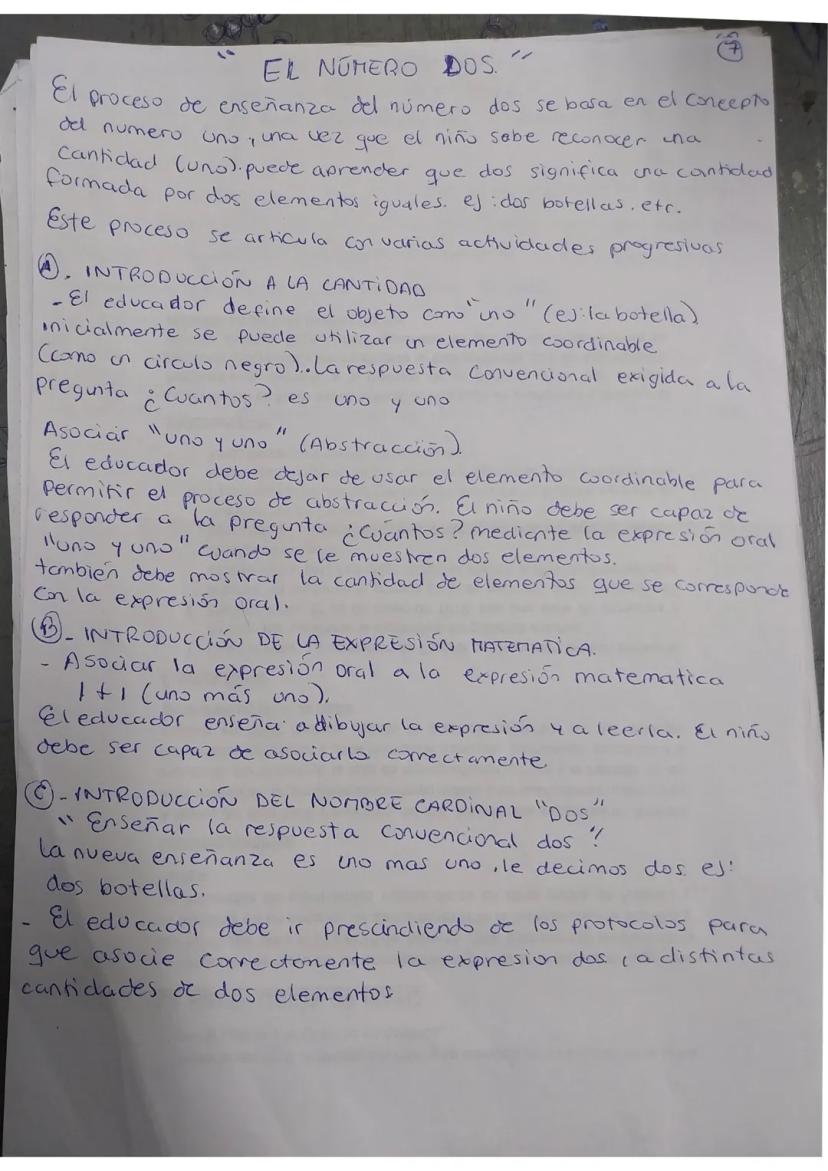 7
" EL NÚMERO DOS. "
El proceso de enseñanza del número dos se basa en el concepto
del numero uno, una vez que el niño sabe reconocer una
cantidad (uno). puede aprender que dos significa una cantidad
formada por dos elementos iguales. ej: dos botellas. etc.
Este proceso se articula con varias actividades progresivas
A. INTRODUCCIÓN A LA CANTIDAD
- El educador define el objeto como "uno" (ej: la botella)
inicialmente se puede utilizar un elemento coordinable
(como un circulo negro). La respuesta convencional exigida a la
pregunta ¿Cuantos? es uno y uno
Asociar "uno y uno" (Abstracción).
El educador debe dejar de usar el elemento coordinable para
permitir el proceso de abstracción. El niño debe ser capaz de
responder a la pregunta ¿Cuántos? mediante la expresión oral
"uno y uno" cuando se le muestren dos elementos.
tambien debe mostrar la cantidad de elementos que se corresponde
con la expresión oral.
B - INTRODUCCIÓN DE LA EXPRESIÓN MATEMATICA.
- Asociar la expresión oral a la expresión matematica
1 + 1 (uno más uno).
El educador enseña a dibujar la expresión y a leerla. El niño
debe ser capaz de asociarla correctamente
C - INTRODUCCIÓN DEL NOMBRE CARDINAL "DOS"
" Enseñar la respuesta convencional dos "
La nueva enseñanza es uno mas uno, le decimos dos. ej:
dos botellas.
- El educador debe ir prescindiendo de los protocolos para
que asocie correctamente la expresion dos, a distintas
cantidades de dos elementos